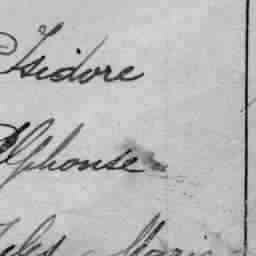 Isidore
Alphonse
Jules Marie